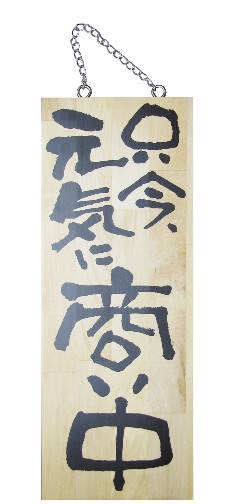 只今、
元気に
商い中